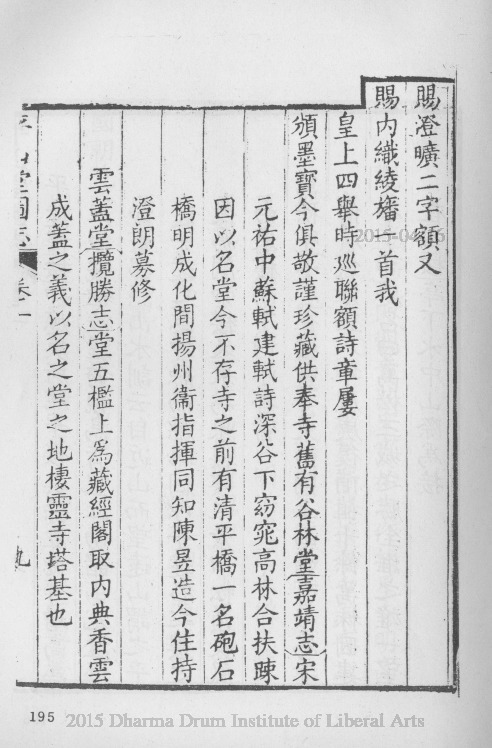 賜澄曠二字額又
賜内織綾旛一首我
皇上四舉時巡聯額詩章屢
頒墨寶今俱敬謹珍藏供奉寺舊有谷林堂嘉靖志宋
元祐中蘇軾建軾詩深谷下窈窕高林合扶踈
因以名堂今不存寺之前有清平橋一名砲石
橋明成化間揚州衞指揮同知陳昱造今住持
澄朗募修
雲蓋堂攬勝志堂五檻上爲藏經閣取内典香雲
成蓋之義以名之堂之地棲靈寺塔基也
山堂圖志 卷一 九
195
2015 Dharma Drum Institute of Liberal Arts